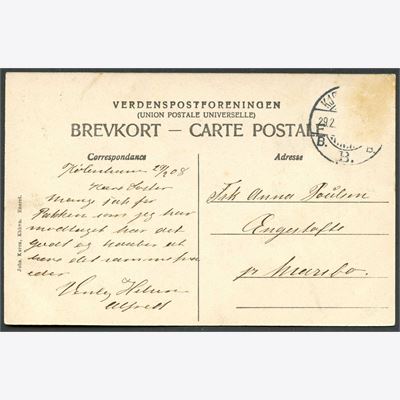 VERDENSPOSTFORENINGEN
(UNION POSTALE UNIVERSELLE)
BREVKORT — CARTE POSTALE
Correspondance
Adresse
29.2
B.
B.
B.
København 29/2 08
Kære Søster
Mange tak for
Pakken som jeg har
modtaget har det
godt og haaber at
være det samme fra
eder
Venlig Hilsen
Alfred
Frk Anna Poulsen
Engestofte
pr Maribo.